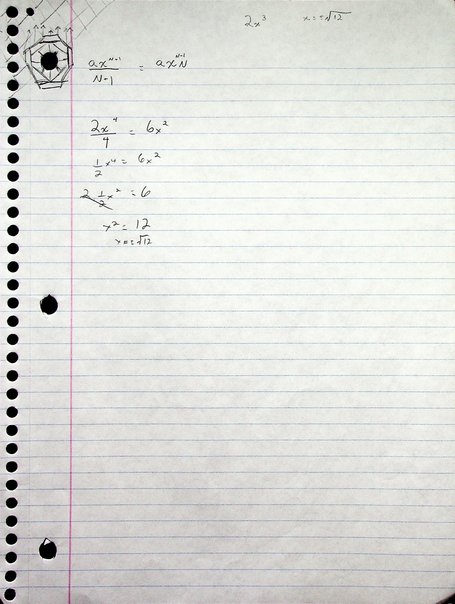 2x³ x=±√12
ax^(N+1)/N+1 = ax^(N-1)N
2x⁴/4 = 6x²
1/2 x⁴ = 6x²
2 1/2 x² = 6
x² = 12
x = ±√12